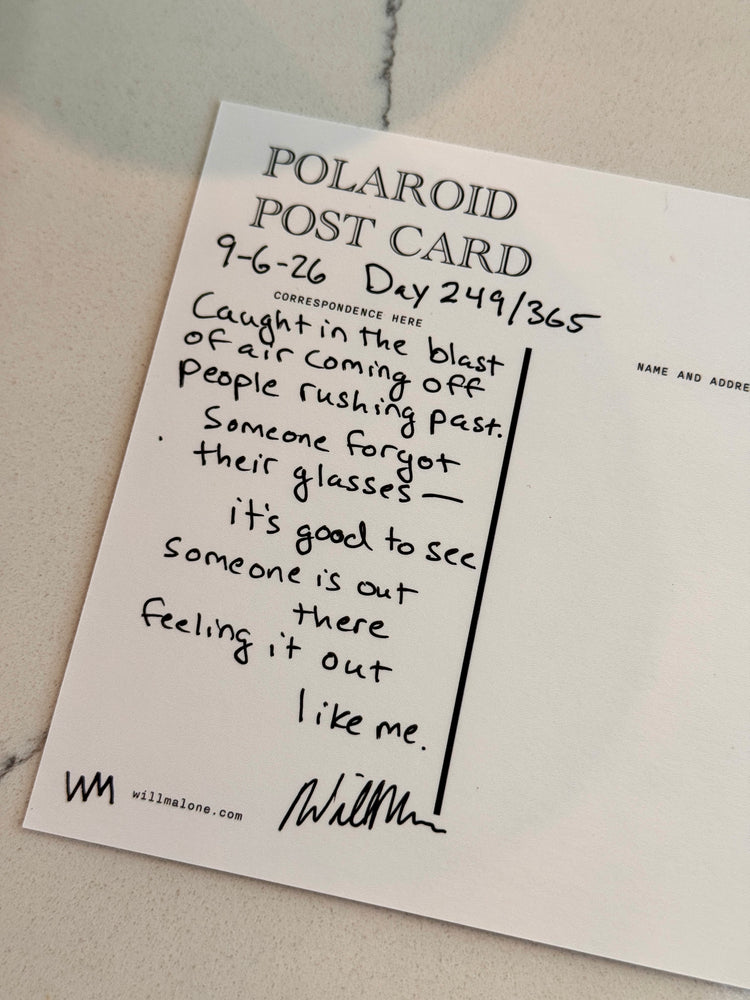 POLAROID
POST CARD
9-6-26 Day 249/365
CORRESPONDENCE HERE
Caught in the blast
of air coming off
people rushing past.
Someone forgot
their glasses—
it's good to see
someone is out
there
feeling it out
like me.
NAME AND ADDRE
WM willmalone.com